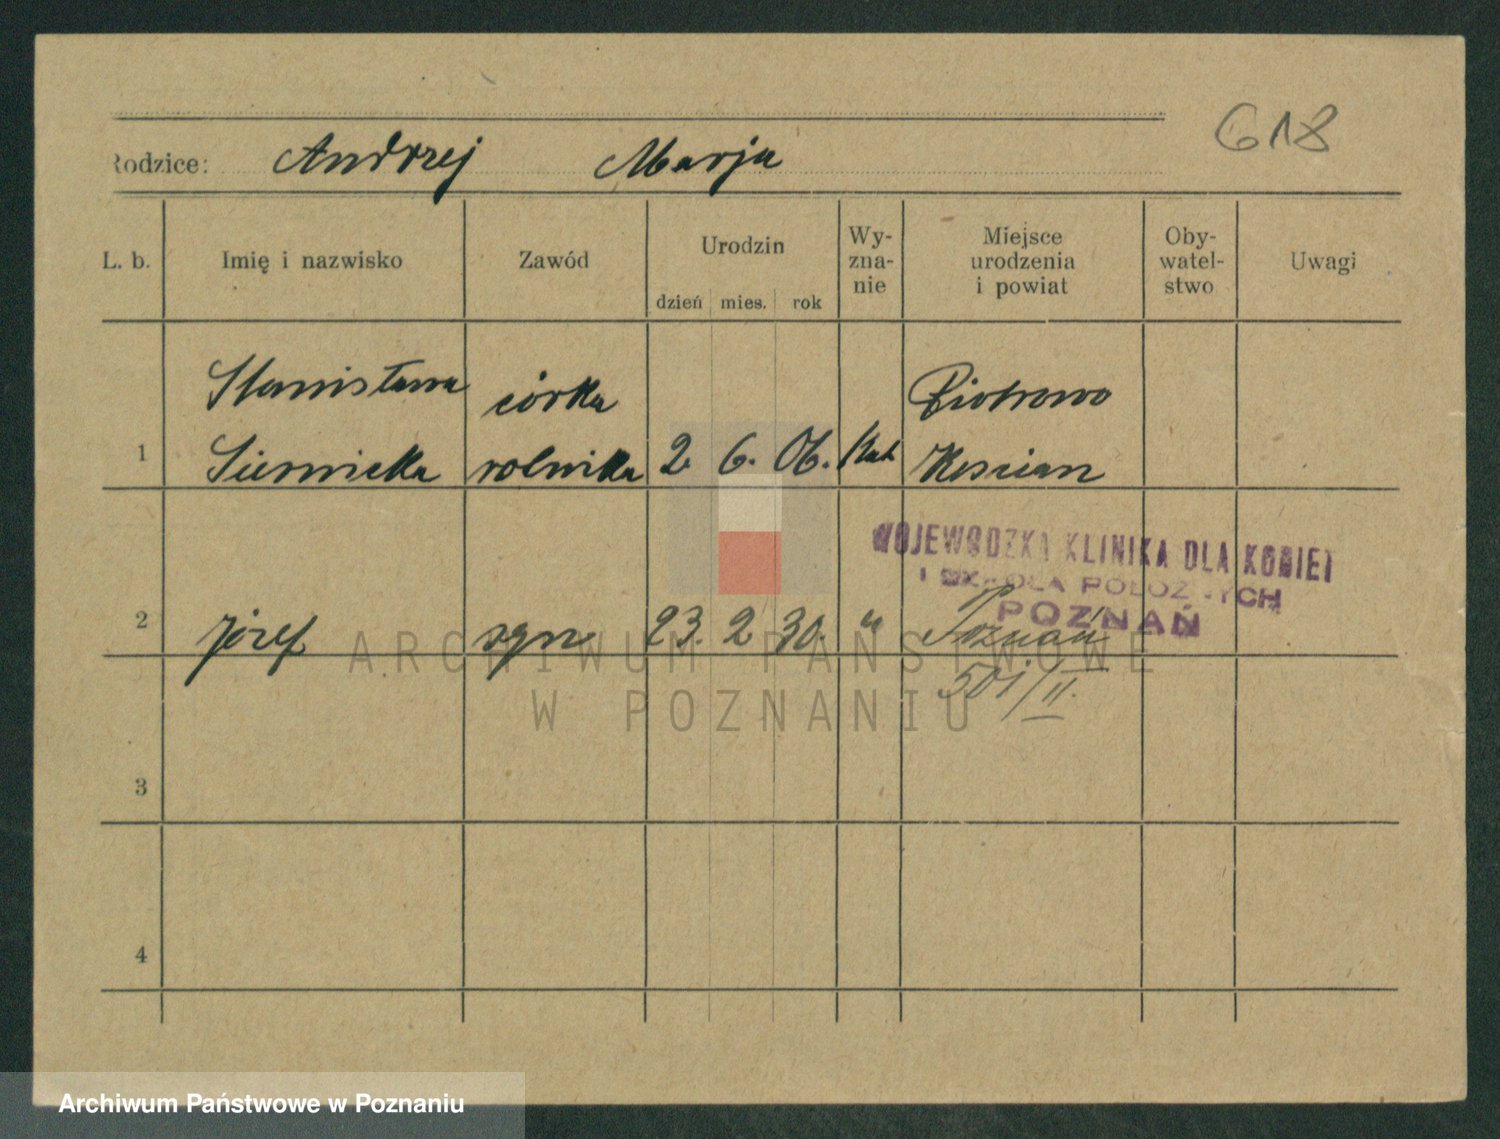 618
Rodzice: Andrzej Marja
L. b. Imię i nazwisko Zawód Urodzin dzień mies. rok Wy-zna-nie Miejsce urodzenia i powiat Oby-watel-stwo Uwagi
Stanisława córka Piotrowo
1 Siernicka rolnika 2 6. 06. Kat Kościan
WOJEWÓDZKA KLINIKA DLA KOBIET
I SZKOŁA POŁOŻNYCH
POZNAŃ
2 józef syn 23. 2 30. " Poznań
501/II.
3
4
ARCHIWUM PAŃSTWOWE
W POZNANIU
Archiwum Państwowe w Poznaniu